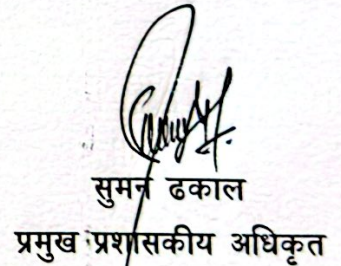 सुमन ढकाल
प्रमुख प्रशासकीय अधिकृत